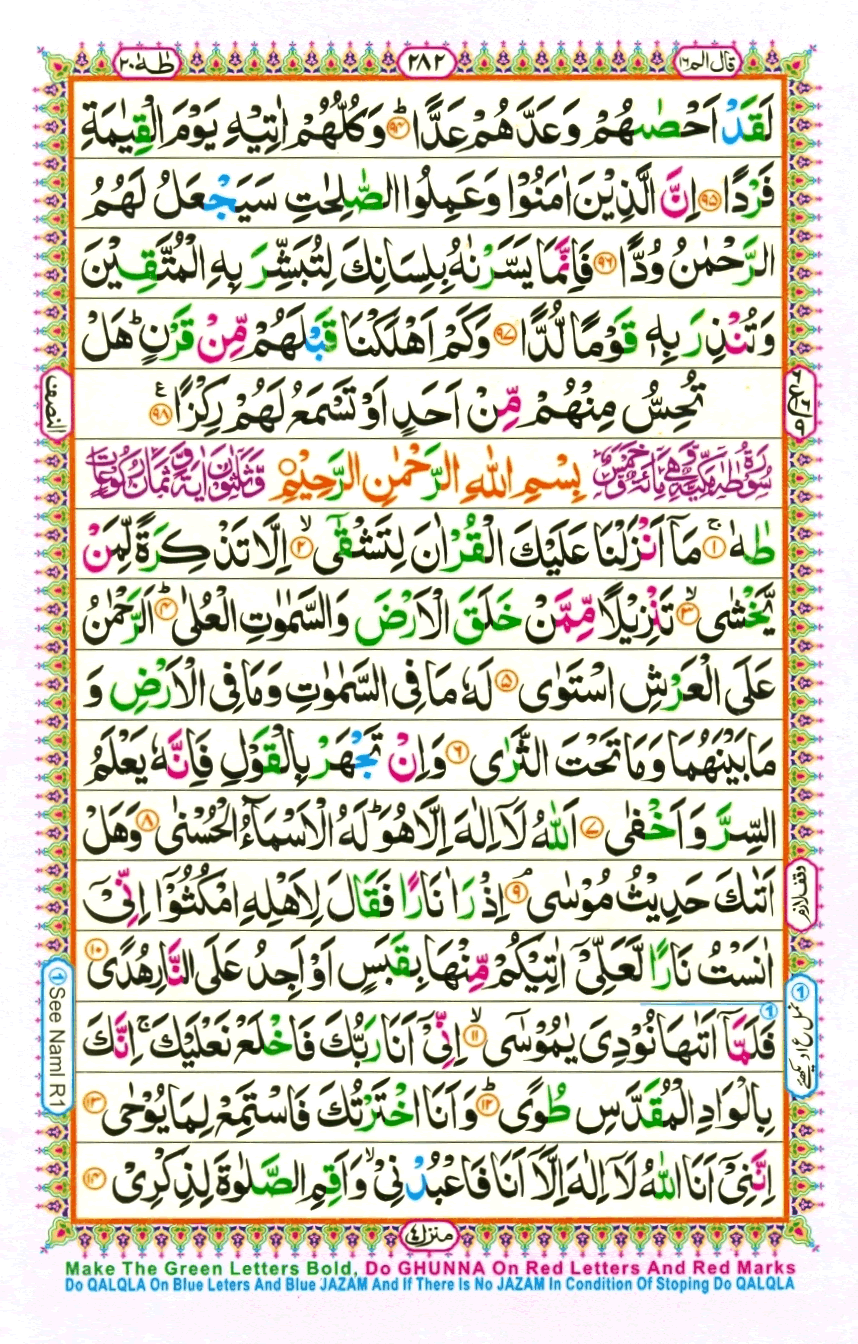 قال الم ١٦
٢٨٢
طٰهٰ ٢٠
لَقَدْ اَحْصٰىهُمْ وَعَدَّهُمْ عَدًّا ؕ﴿۹۴﴾ وَكُلُّهُمْ اٰتِیْهِ یَوْمَ الْقِیٰمَةِ
فَرْدًا ﴿۹۵﴾ اِنَّ الَّذِیْنَ اٰمَنُوْا وَعَمِلُوا الصّٰلِحٰتِ سَیَجْعَلُ لَهُمُ
الرَّحْمٰنُ وُدًّا ﴿۹۶﴾ فَاِنَّمَا یَسَّرْنٰهُ بِلِسَانِكَ لِتُبَشِّرَ بِهِ الْمُتَّقِیْنَ
وَتُنْذِرَ بِهٖ قَوْمًا لُّدًّا ﴿۹۷﴾ وَكَمْ اَهْلَكْنَا قَبْلَهُمْ مِّنْ قَرْنٍ ؕ هَلْ
تُحِسُّ مِنْهُمْ مِّنْ اَحَدٍ اَوْ تَسْمَعُ لَهُمْ رِكْزًا ﴿۹۸﴾ ع
النصف
سُوْرَةُ طٰهٰ مَكِّیَّةٌ وَّهِیَ مِائَةٌ وَّخَمْسٌ بِسْمِ اللّٰهِ الرَّحْمٰنِ الرَّحِیْمِ وَّثَلٰثُوْنَ اٰیَةً وَّثَمَانُ رُكُوْعَاتٍ
طٰهٰ ۚ﴿۱﴾ مَاۤ اَنْزَلْنَا عَلَیْكَ الْقُرْاٰنَ لِتَشْقٰۤی ۙ﴿۲﴾ اِلَّا تَذْكِرَةً لِّمَنْ
یَّخْشٰی ۙ﴿۳﴾ تَنْزِیْلًا مِّمَّنْ خَلَقَ الْاَرْضَ وَالسَّمٰوٰتِ الْعُلٰی ؕ﴿۴﴾ اَلرَّحْمٰنُ
عَلَی الْعَرْشِ اسْتَوٰی ﴿۵﴾ لَهٗ مَا فِی السَّمٰوٰتِ وَمَا فِی الْاَرْضِ وَ
مَا بَیْنَهُمَا وَمَا تَحْتَ الثَّرٰی ﴿۶﴾ وَاِنْ تَجْهَرْ بِالْقَوْلِ فَاِنَّهٗ یَعْلَمُ
السِّرَّ وَاَخْفٰی ﴿۷﴾ اَللّٰهُ لَاۤ اِلٰهَ اِلَّا هُوَ ؕ لَهُ الْاَسْمَآءُ الْحُسْنٰی ﴿۸﴾ وَهَلْ
اَتٰىكَ حَدِیْثُ مُوْسٰی ۘ﴿۹﴾ اِذْ رَاٰ نَارًا فَقَالَ لِاَهْلِهِ امْكُثُوْۤا اِنِّیْۤ
وقف لازم
اٰنَسْتُ نَارًا لَّعَلِّیْۤ اٰتِیْكُمْ مِّنْهَا بِقَبَسٍ اَوْ اَجِدُ عَلَی النَّارِ هُدًی ﴿۱۰﴾
فَلَمَّاۤ اَتٰىهَا نُوْدِیَ یٰمُوْسٰی ۙ﴿۱۱﴾ اِنِّیْۤ اَنَا رَبُّكَ فَاخْلَعْ نَعْلَیْكَ ۚ اِنَّكَ
① See Naml R1
بِالْوَادِ الْمُقَدَّسِ طُوًی ؕ﴿۱۲﴾ وَاَنَا اخْتَرْتُكَ فَاسْتَمِعْ لِمَا یُوْحٰی ﴿۱۳﴾
اِنَّنِیْۤ اَنَا اللّٰهُ لَاۤ اِلٰهَ اِلَّاۤ اَنَا فَاعْبُدْنِیْ ۙ وَاَقِمِ الصَّلٰوةَ لِذِكْرِیْ ﴿۱۴﴾
منزل ٤
Make The Green Letters Bold, Do GHUNNA On Red Letters And Red Marks
Do QALQLA On Blue Leters And Blue JAZAM And If There Is No JAZAM In Condition Of Stoping Do QALQLA